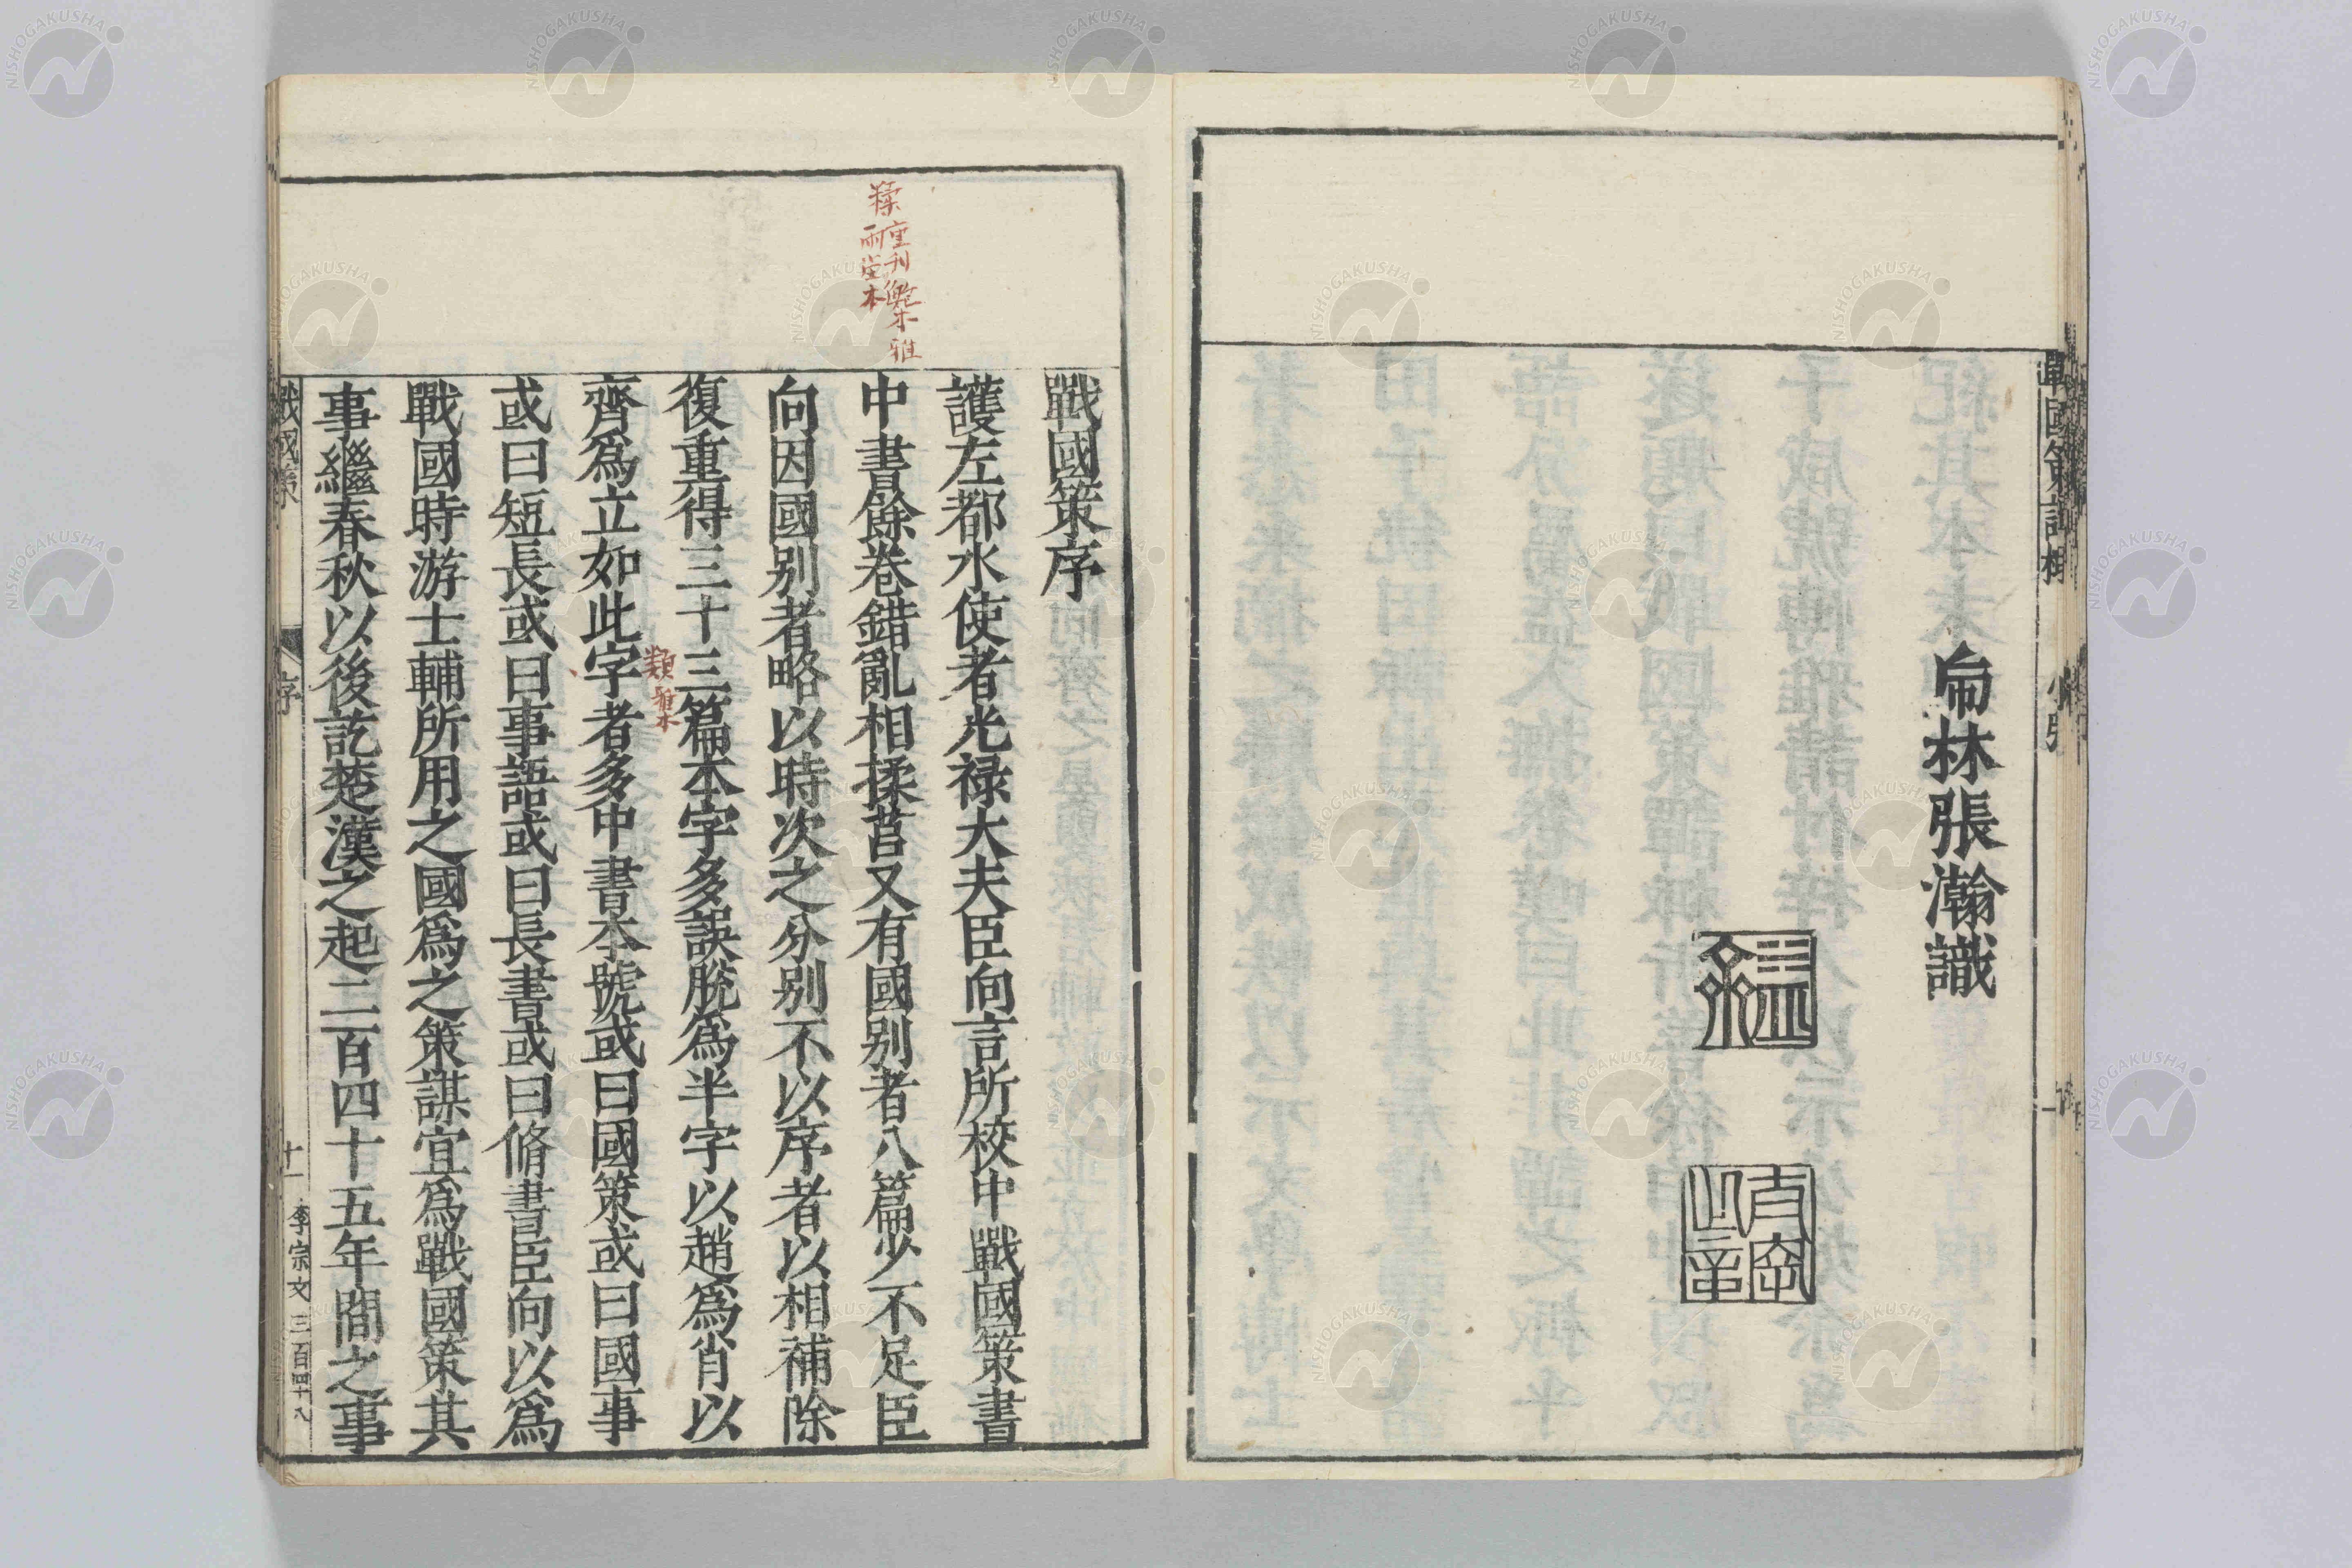 戰國策譚棷
張瀚識
戰國策序
護左都水使者光禄大夫臣向言所校中戰國策書
中書餘卷錯亂相揉莒又有國別者八篇少不足臣
向因國別者略以時次之分別不以序者以相補除
復重得三十三篇本字多誤脫爲半字以趙爲肖以
齊爲立如此字者多中書本號或曰國策或曰國事
或曰短長或曰事語或曰長書或曰脩書臣向以爲
戰國時游士輔所用之國爲之策謀宜爲戰國策其
事繼春秋以後訖楚漢之起二百四十五年間之事
類
雅本
戰國策
序
十一
李宗文 三百四十八
NISHOGAKUSHA